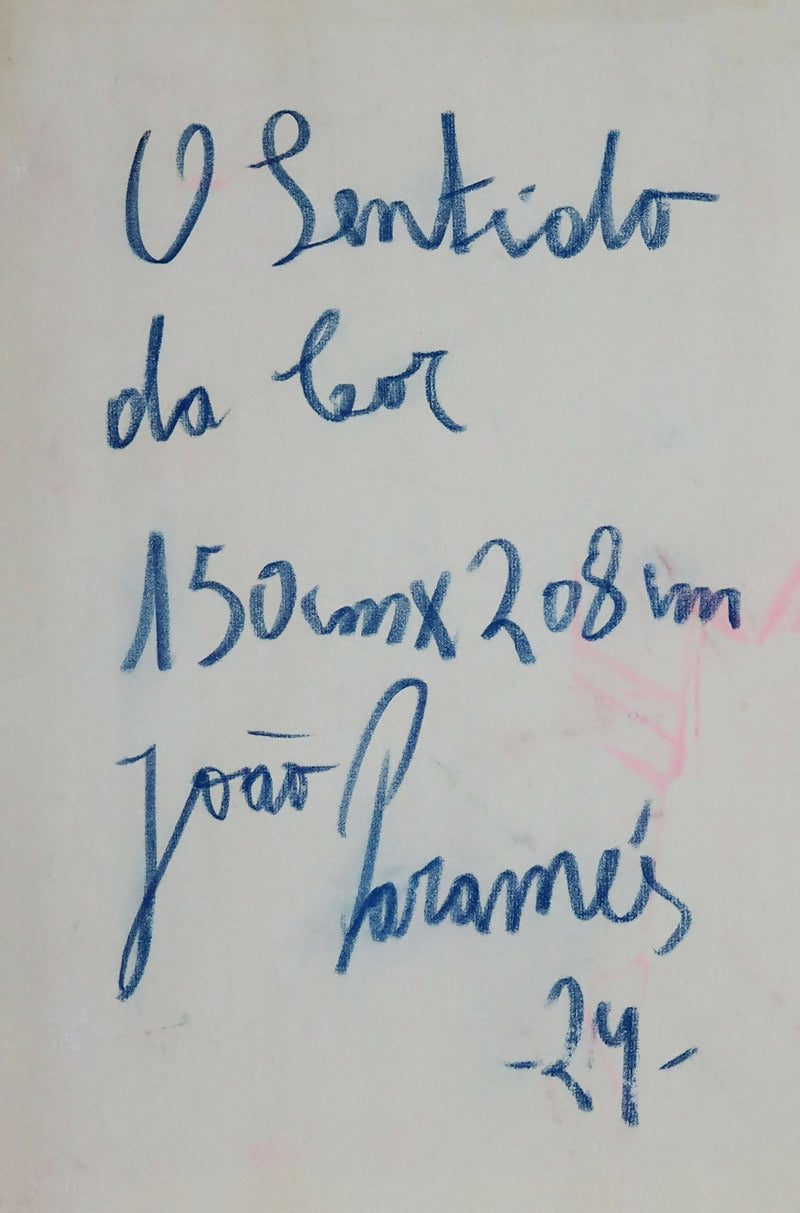 O Sentido
da Cor
150cm x 208cm
João Paramés
-24-